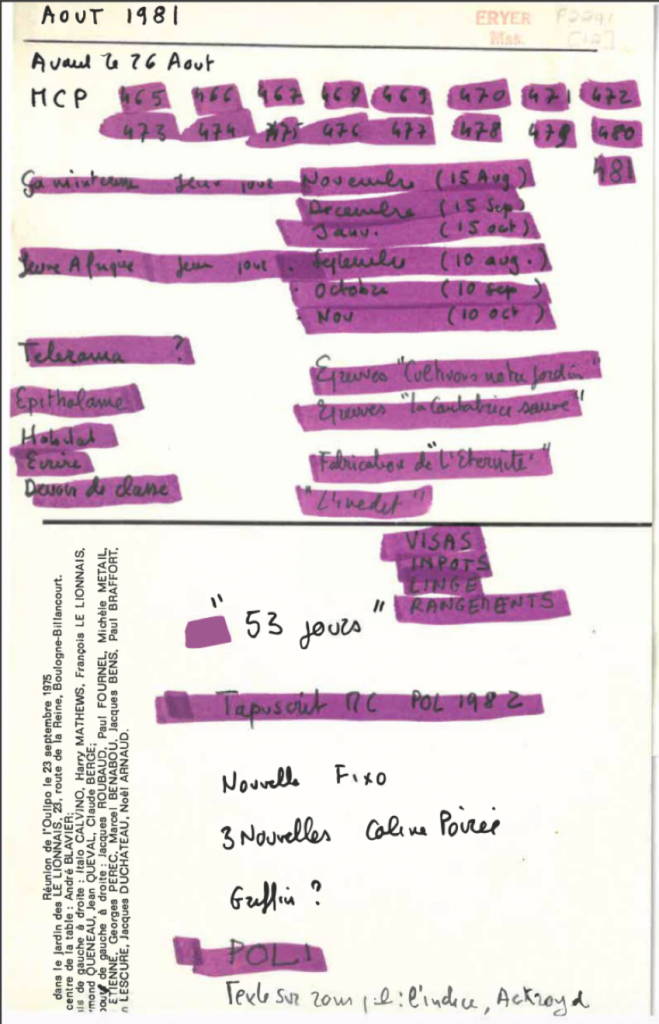 AOUT 1981
ERYER
Mss.
Avant le 26 Aout
MCP 465 466 467 468 469 470 471 472
473 474 475 476 477 478 479 480
481
Ça m'interesse Jeux pour Novembre (15 Aug)
Decembre (15 Sep)
Janv. (15 oct)
Jeune Afrique Jeux pour . Septembre (10 aug.)
. Octobre (10 sep)
. Nov (10 oct)
Telerama ?
Epreuves "Cultivons notre Jardin"
Epithalame
Epreuves "la Cantatrice sauve"
Habitat
Ecrire
Fabrication de "L'Eternité"
Devoir de classe
"L'inedit"
VISAS
INPOTS
LINGE
RANGEMENTS
"53 jours"
Tapuscrit MC POL 1982
Nouvelle Fixo
3 Nouvelles Coline Poirée
Griffin ?
POL!
Texte sur l'indice, Ackroyd
Réunion de l'Oulipo le 23 septembre 1975
dans le jardin des LE LIONNAIS, 23, route de la Reine, Boulogne-Billancourt.
centre de la table : André BLAVIER;
is de gauche à droite : Italo CALVINO, Harry MATHEWS, François LE LIONNAIS,
mond QUENEAU, Jean QUEVAL, Claude BERGE;
bout de gauche à droite : Jacques ROUBAUD, Paul FOURNEL, Michèle METAIL,
ETIENNE, Georges PEREC, Marcel BENABOU, Jacques BENS, Paul BRAFFORT,
n LESCURE, Jacques DUCHATEAU, Noël ARNAUD.